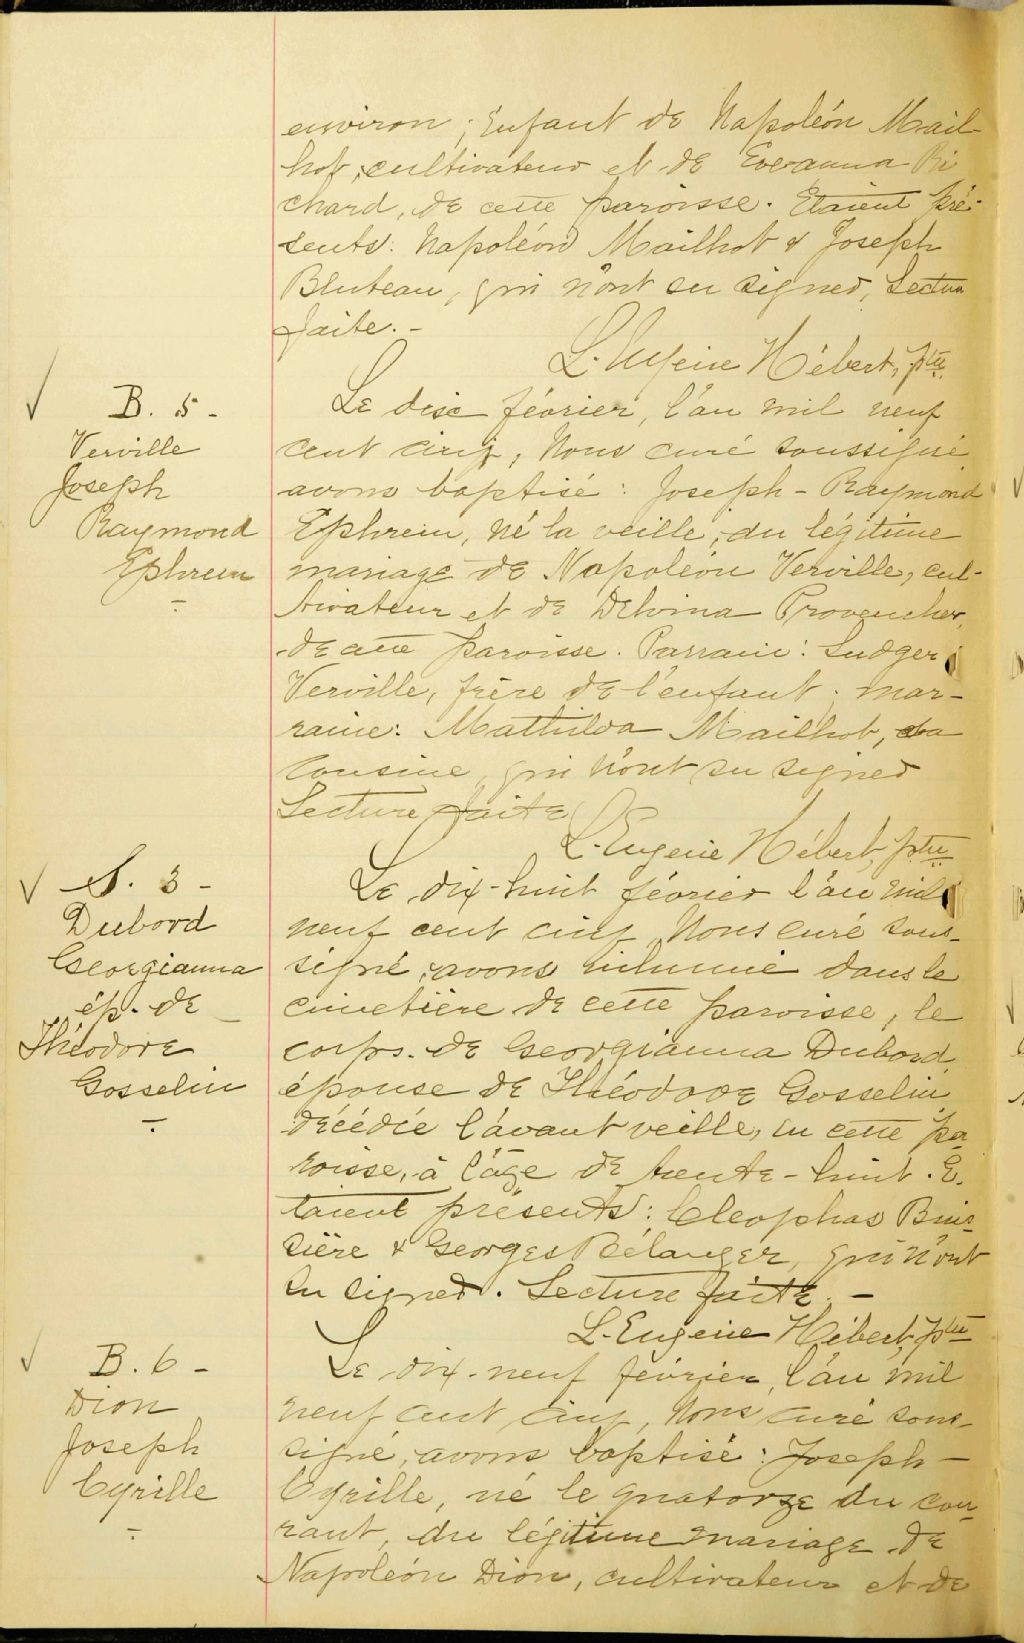 environ ; Enfant de Napoléon Mail-
hot, cultivateur et de Eveanna Ri
chard, de cette paroisse. Etaient pré-
sents: Napoléon Mailhot & Joseph
Bluteau, qui n'ont su signer, Lecture
faite. -
L. Eugène Hébert, ptre
B. 5 -
Verville
Joseph
Raymond
Ephrem
Le dix février, l'an mil neuf
cent cinq, Nous curé soussigné
avons baptisé : Joseph - Raymond
Ephrem, né la veille, du légitime
mariage de Napoléon Verville, cul-
tivateur et de Delvina Provencher,
de cette paroisse. Parrain: Ludger
Verville, frère de l'enfant ; mar-
raine: Mathilda Mailhot, sa
cousine, qui n'ont su signer
Lecture faite
L. Eugène Hébert, ptre
S. 3 -
Dubord
Georgianna
ép. de
Théodore
Gosselin
Le dix-huit février l'an mil
neuf cent cinq Nous curé sous-
signé, avons inhumé dans le
cimetière de cette paroisse, le
corps de Georgianna Dubord,
épouse de Théodore Gosselin,
décédée l'avant veille, en cette pa-
roisse, à l'âge de trente-huit. E-
taient présents: Cleophas Buis-
sière & Georges Bélanger, qui n'ont
su signer. Lecture faite. -
L. Eugène Hébert, ptre
B. 6 -
Dion
Joseph
Cyrille
Le dix-neuf février, l'an mil
neuf cent cinq, Nous curé sous-
signé, avons baptisé : Joseph -
Cyrille, né le quatorze du cou-
rant, du légitime mariage de
Napoléon Dion, cultivateur et de